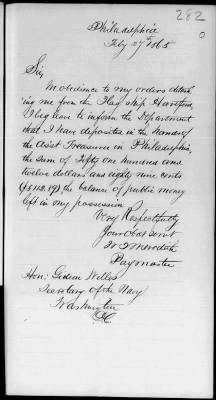 282
Philadelphia
Feby 27th 1865
Sir,
In obedience to my orders detach-
ing me from the Flag Ship Hartford,
I beg leave to inform the Department
that I have deposited in the hands of
the Asst Treasurer in Philadelphia,
the sum of Fifty one hundred and
twelve dollars and eighty nine cents
the balance of public money
left in my possession
Very Respectfully
Your Obdt Servt
Paymaster
Hon: Gideon Welles
Secretary of the Navy
Washington
DC